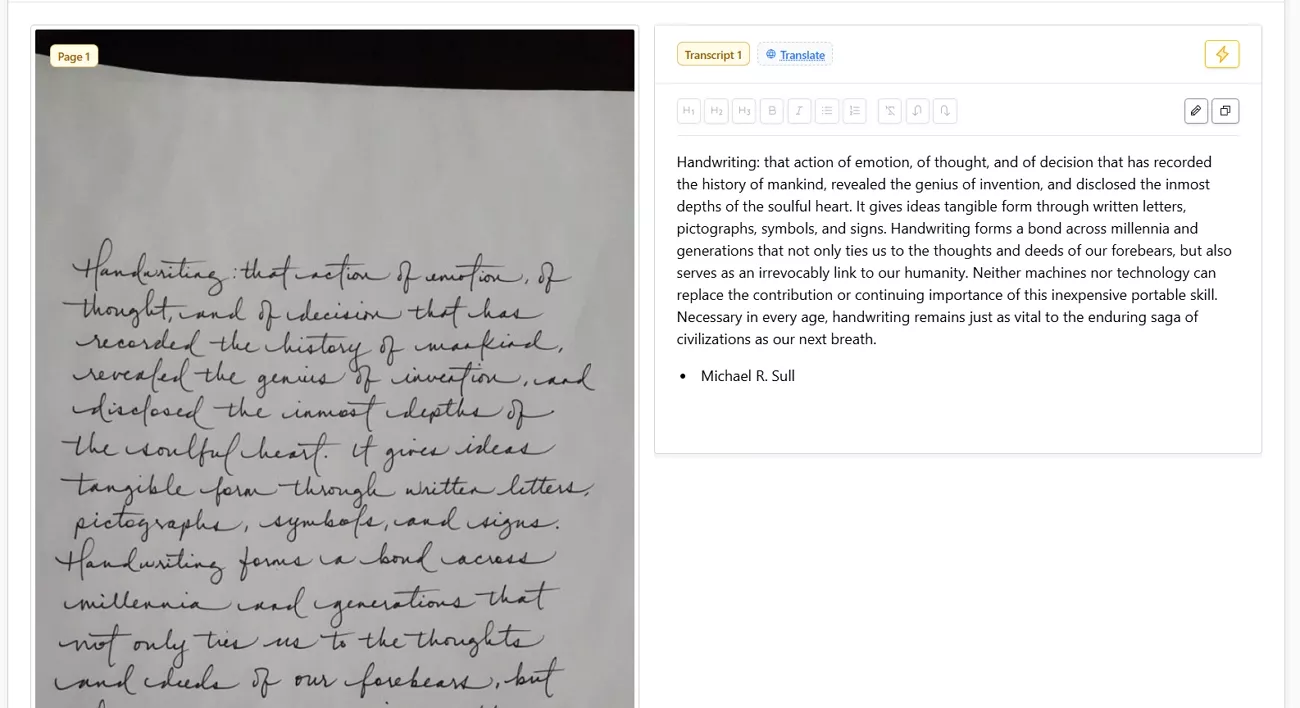 Page 1
Handwriting: that action of emotion, of
thought, and of decision that has
recorded the history of mankind,
revealed the genius of invention, and
disclosed the inmost depths of
the soulful heart. It gives ideas
tangible form through written letters,
pictographs, symbols, and signs.
Handwriting forms a bond across
millennia and generations that
not only ties us to the thoughts
and deeds of our forebears, but
Transcript 1 Translate
H1 H2 H3 B I
Handwriting: that action of emotion, of thought, and of decision that has recorded
the history of mankind, revealed the genius of invention, and disclosed the inmost
depths of the soulful heart. It gives ideas tangible form through written letters,
pictographs, symbols, and signs. Handwriting forms a bond across millennia and
generations that not only ties us to the thoughts and deeds of our forebears, but also
serves as an irrevocably link to our humanity. Neither machines nor technology can
replace the contribution or continuing importance of this inexpensive portable skill.
Necessary in every age, handwriting remains just as vital to the enduring saga of
civilizations as our next breath.
• Michael R. Sull